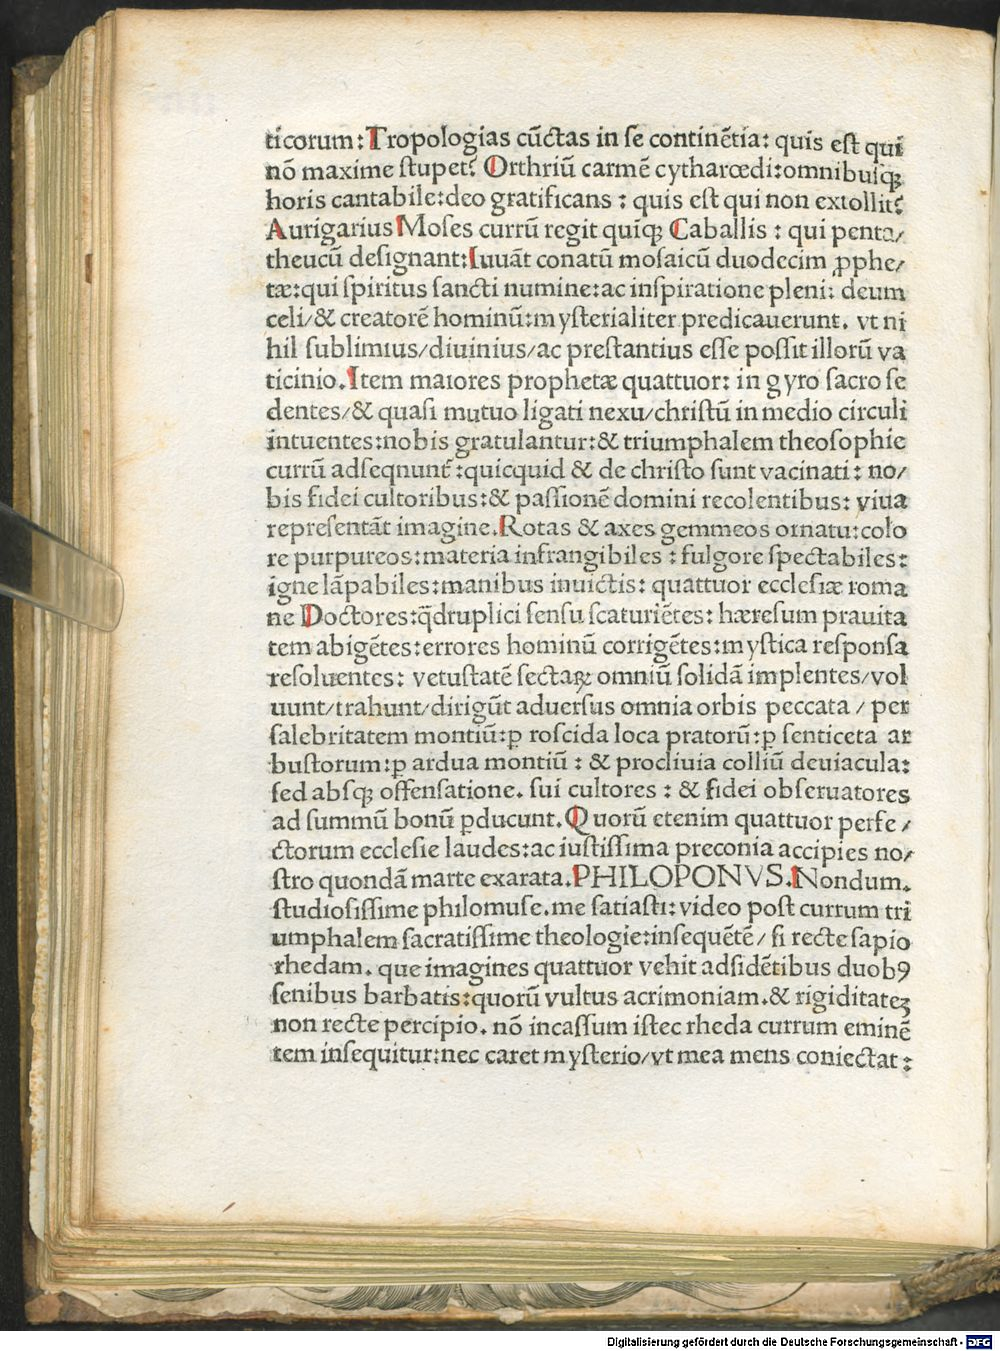 ticorum: Tropologias cūctas in ſe continētia: quis eſt qui
nō maxime ſtupet? Orthriū carmē cytharœdi: omnibuſqꝫ
horis cantabile: deo gratificans : quis eſt qui non extollit?
Aurigarius Moſes currū regit quiqꝫ Caballis : qui penta/
theucū deſignant: Iuuāt conatū moſaicū duodecim ꝓphe/
tæ: qui ſpiritus ſancti numine: ac inſpiratione pleni: deum
celi/ & creatorē hominū: myſterialiter predicauerunt. vt ni
hil ſublimius/ diuinius/ ac preſtantius eſſe poſſit illorū va
ticinio. Item maiores prophetæ quattuor: in gyro ſacro ſe
dentes/ & quaſi mutuo ligati nexu/ chriſtū in medio circuli
intuentes: nobis gratulantur: & triumphalem theoſophie
currū adſeqnunt̄ : quicquid & de chriſto ſunt vacinati : no/
bis fidei cultoribus: & paſſionē domini recolentibus: viua
repreſentāt imagine. Rotas & axes gemmeos ornatu: colo
re purpureos: materia infrangibiles : fulgore ſpectabiles:
igne lāpabiles: manibus inuictis: quattuor eccleſiæ roma
ne Doctores: q̄druplici ſenſu ſcaturiētes: hæreſum prauita
tem abigētes: errores hominū corrigētes: myſtica reſponſa
reſoluentes: vetuſtatē ſectaꝝ omniū ſolidā implentes/ vol
uunt/ trahunt/ dirigūt aduerſus omnia orbis peccata / per
ſalebritatem montiū: ꝑ roſcida loca pratorū: ꝑ ſenticeta ar
buſtorum: ꝑ ardua montiū : & procliuia colliū deuiacula:
ſed abſqꝫ offenſatione. ſui cultores : & fidei obſeruatores
ad ſummū bonū ꝑducunt. Quorū etenim quattuor perfe /
ctorum eccleſie laudes: ac iuſtiſſima preconia accipies no/
ſtro quondā marte exarata. PHILOPONVS. Nondum.
ſtudioſiſſime philomuſe. me ſatiaſti: video poſt currum tri
umphalem ſacratiſſime theologie: inſequētē/ ſi recte ſapio
rhedam. que imagines quattuor vehit adſidētibus duobꝰ
ſenibus barbatis: quorū vultus acrimoniam. & rigiditateꝫ
non recte percipio. nō incaſſum iſtec rheda currum eminē
tem inſequitur: nec caret myſterio/ vt mea mens coniectat :
Digitalisierung gefördert durch die Deutsche Forschungsgemeinschaft - DFG